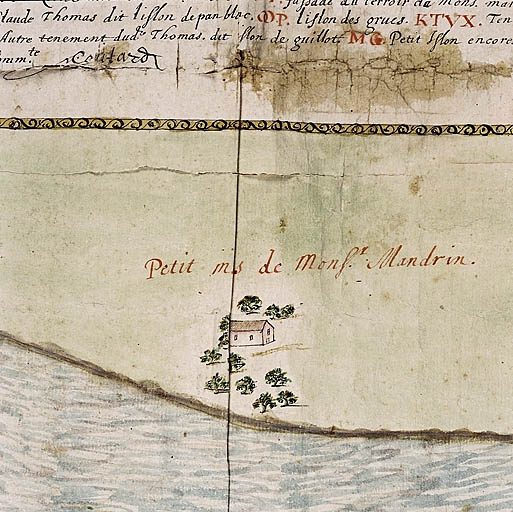 fussade du terroir du Mons. mar
laude Thomas dit lislon depanbloc. OP. lislon des grues. KTVX. Ten
Autre tenement dud.t Thomas. dit slon de guillot. MG. Petit Islon encores
omm.te Coutard
Petit ms de Mons.r Mandrin.